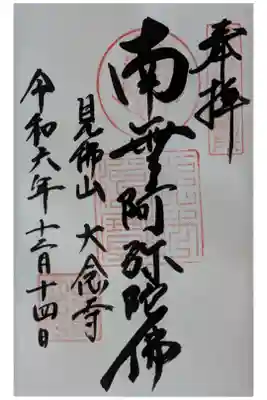 奉拝
南無阿弥陀佛
見佛山 大念寺
令和六年 十二月十四日